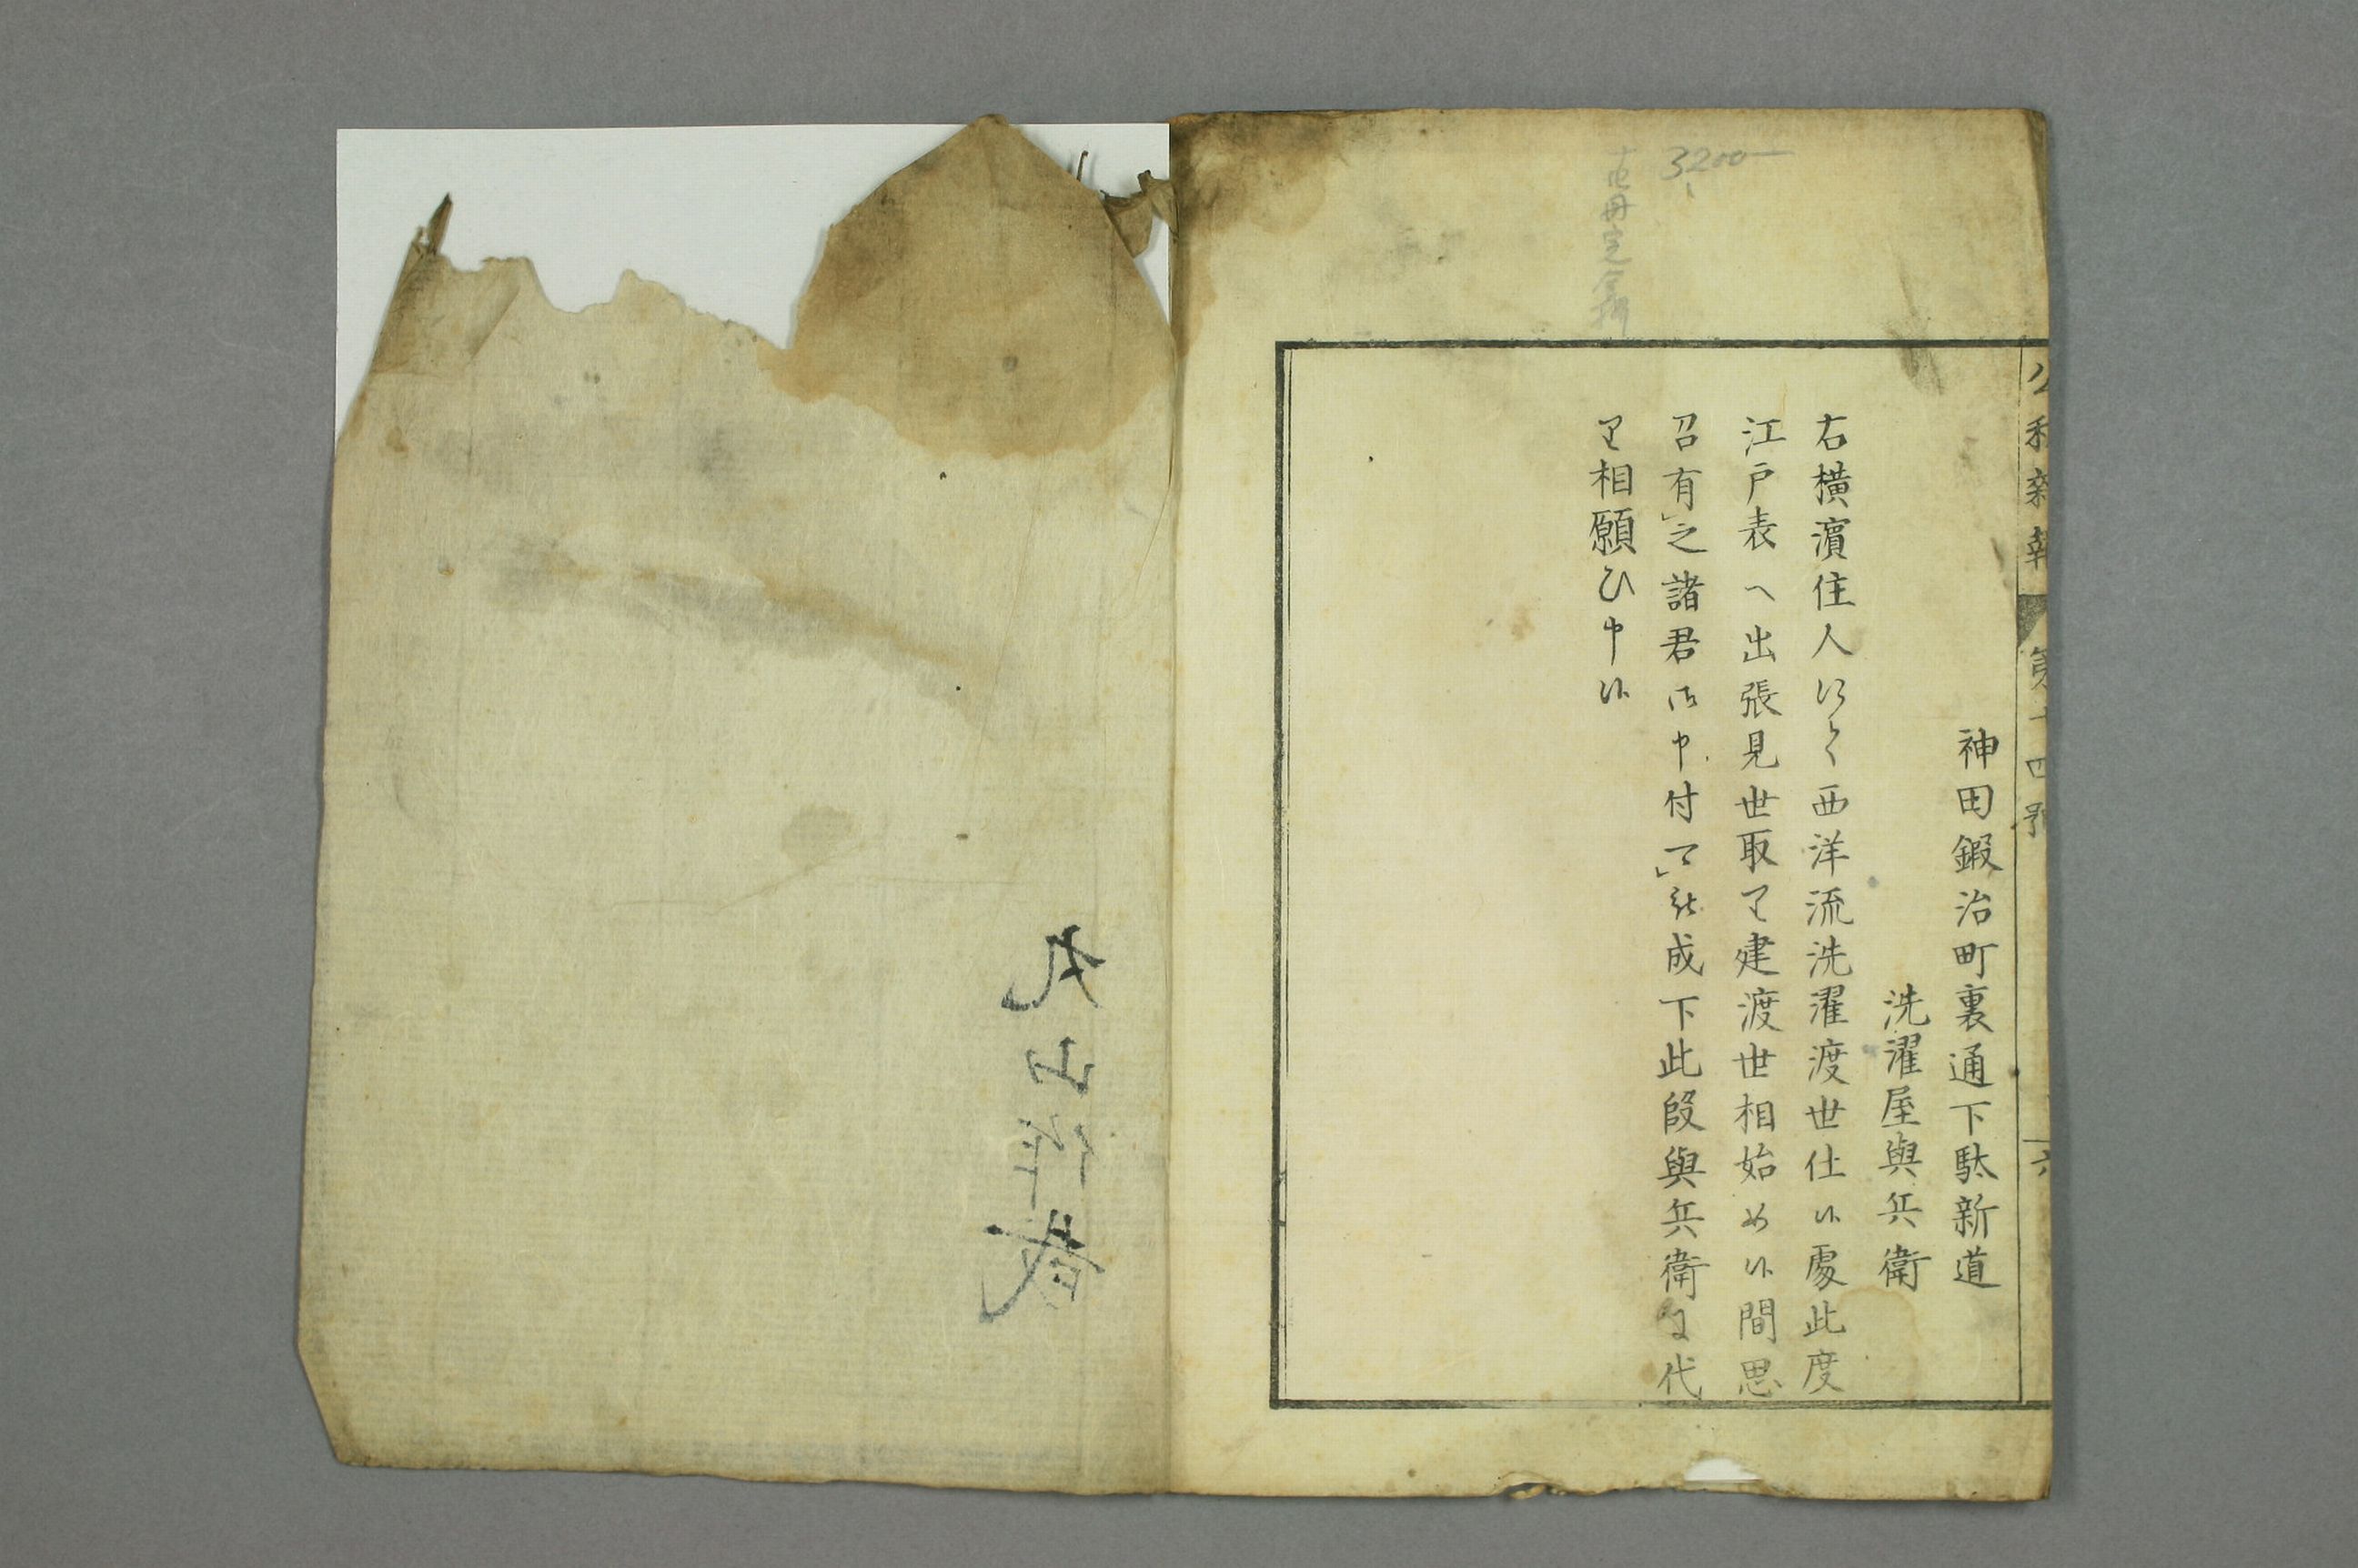 公私雑報 第十四號 六
神田鍜治町裏通下駄新道
洗濯屋與兵衛
右横濵住人にて西洋流洗濯渡世仕候處此度
江戸表へ出張見世取り建渡世相始め候間思
召有之諸君御申付可被成下此段與兵衛に代
り相願ひ申候
3200
丸山作蔵